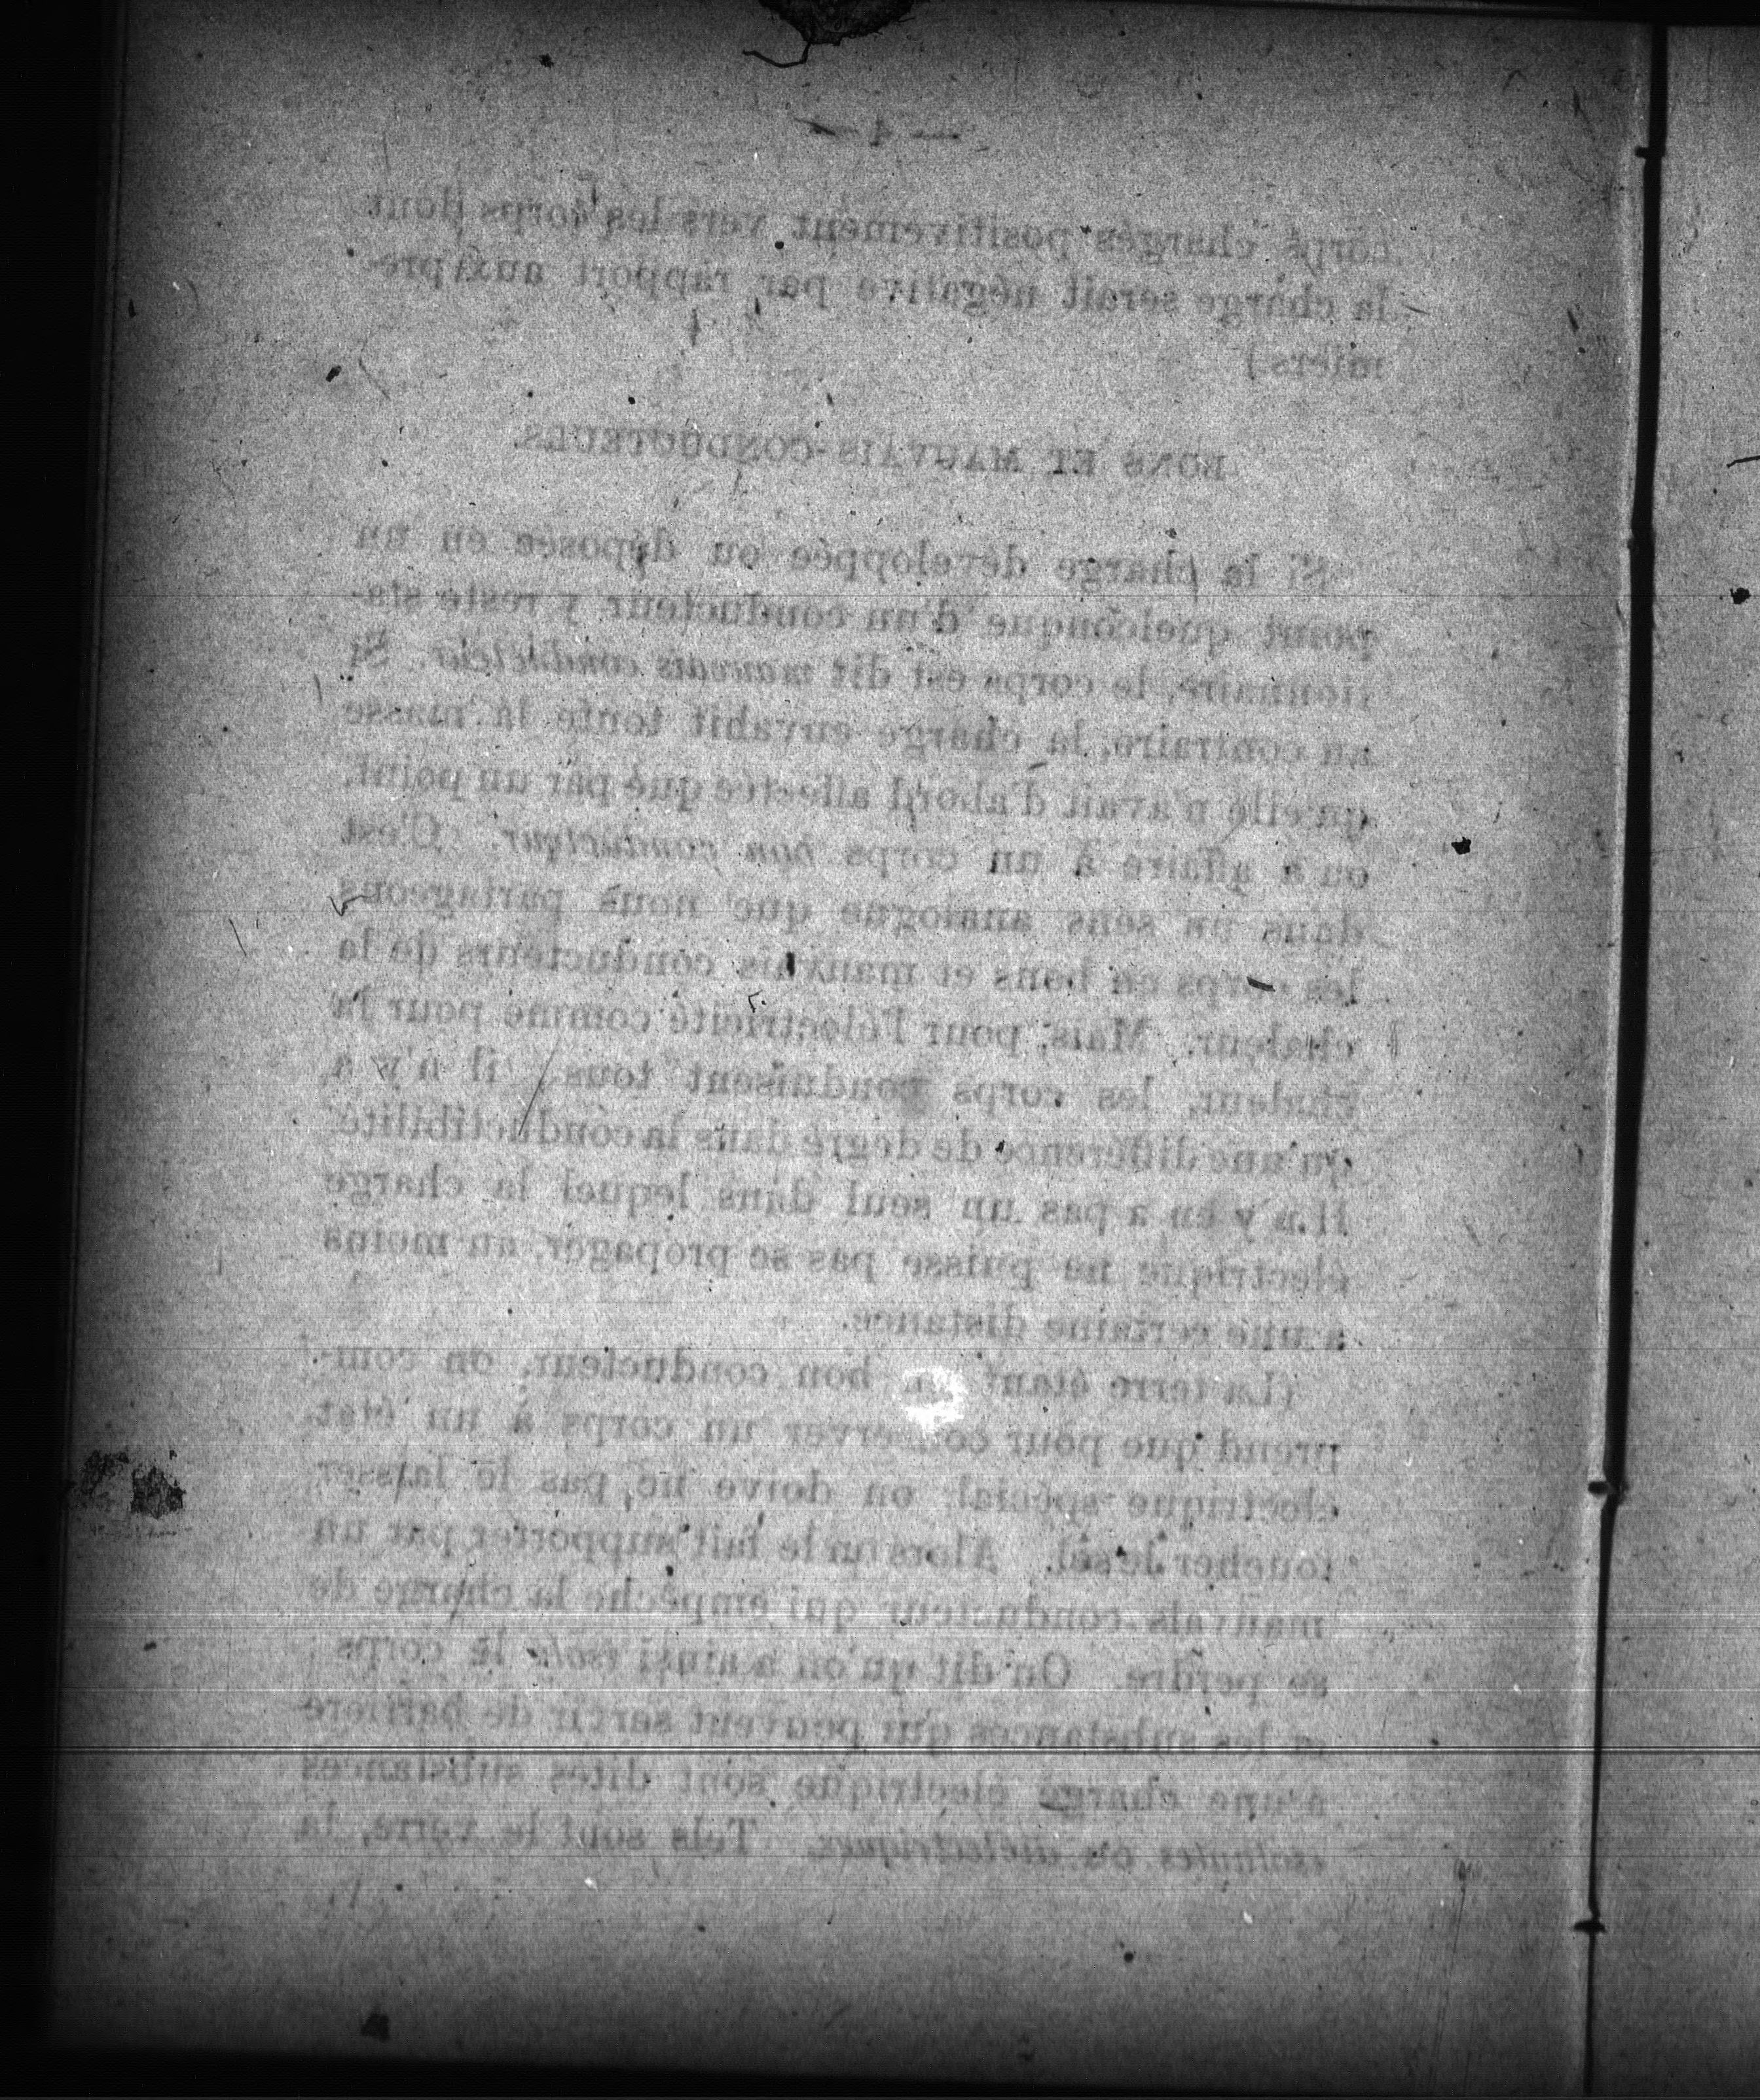 — 4 —
corps chargés positivement vers les corps dont
la charge serait négative par rapport aux pre-
miers.)
BONS ET MAUVAIS CONDUCTEURS.
Si la charge développée ou déposée en un
point quelconque d'un conducteur y reste sta-
tionnaire, le corps est dit mauvais conducteur. Si
au contraire, la charge envahit toute la masse
qu'elle n'avait d'abord affectée que par un point,
on a affaire à un corps bon conducteur. C'est
dans un sens analogue que nous partageons
les corps en bons et mauvais conducteurs de la
chaleur. Mais, pour l'électricité comme pour la
chaleur, les corps conduisent tous; il n'y a
qu'une différence de degré dans la conductibilité.
Il n'y en a pas un seul dans lequel la charge
électrique ne puisse pas se propager, au moins
à une certaine distance.
(La terre étant un bon conducteur, on com-
prend que pour conserver un corps à un état
électrique spécial, on doive ne pas le laisser
toucher le sol. Alors on le fait supporter par un
mauvais conducteur qui empêche la charge de
se perdre. On dit qu'on a ainsi isolé le corps
et les substances qui peuvent servir de barrière
à une charge électrique sont dites substances
isolantes ou diélectriques. Tels sont le verre, la